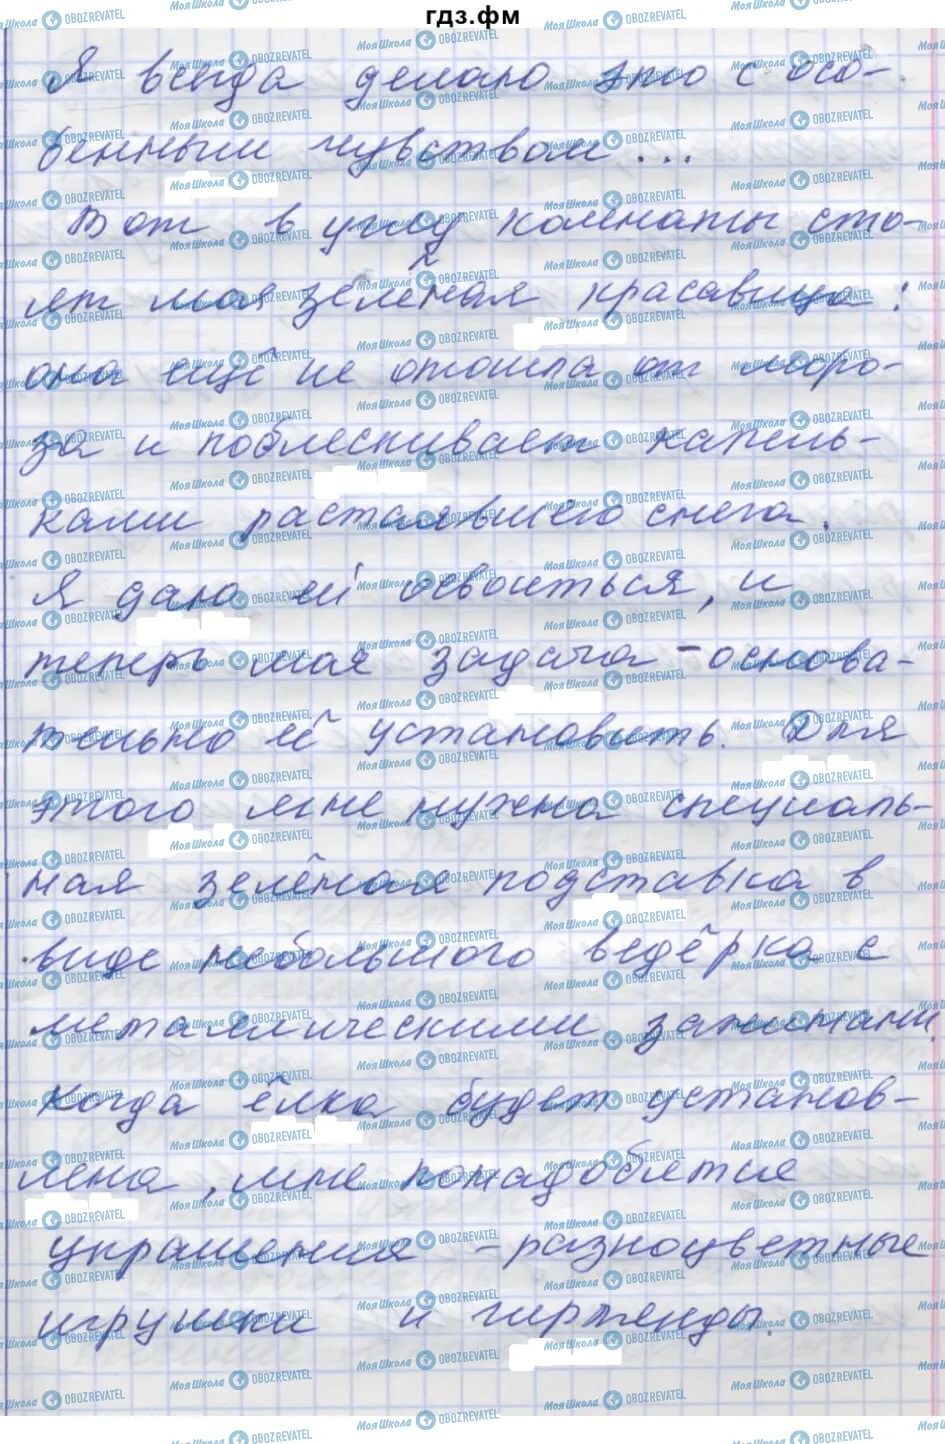 гдз.фм
Я всегда делаю это с осо-
бенным чувством...
Вот в углу комнаты сто-
ит моя зелёная красавица:
она ещё не отошла от моро-
за и поблескивает капель-
ками растаявшего снега.
Я даю ей освоиться, и
теперь моя задача - основа-
тельно её установить. Для
этого мне нужна специаль-
ная зелёная подставка в
виде небольшого ведёрка с
металлическими зажимами.
Когда ёлка будет установ-
лена, мне понадобятся
украшения - разноцветные
игрушки и гирлянды.
МояШкола OBOZREVATEL